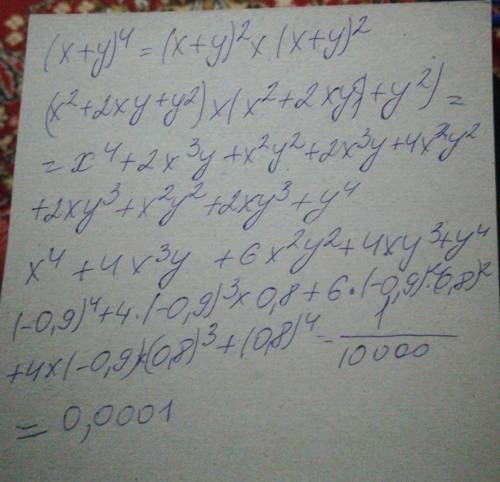 (x+y)⁴ = (x+y)² x (x+y)²
(x²+2xy+y²) x (x²+2xy)+y²) =
= x⁴+2x³y+x²y²+2x³y+4x²y²
+2xy³+x²y²+2xy³+y⁴
x⁴+4x³y+6x²y²+4xy³+y⁴
(-0,9)⁴+4·(-0,9)³x0,8+6·(-0,9)²·(0,8)²
+4x(-0,9)x(0,8)³+(0,8)⁴ = 1/10000
= 0,0001